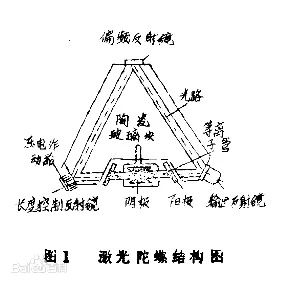 偏频反射镜
光路
陶瓷
玻璃块
等离
子管
压电作
动板
长度控制反射镜
阴极
阳极
输出反射镜
图1 激光陀螺结构图
Bai百科